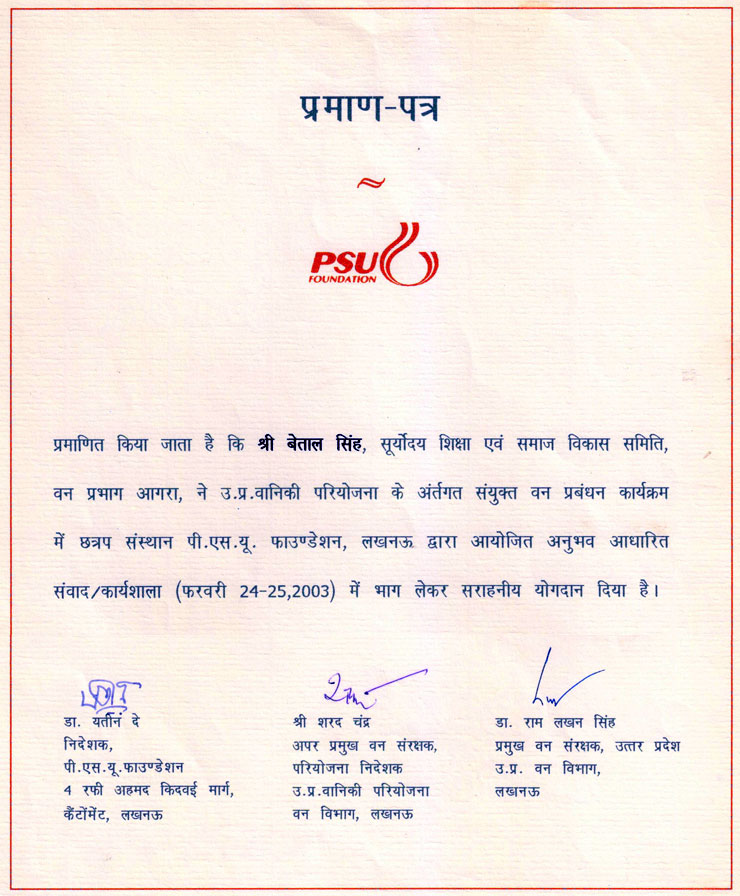 प्रमाण-पत्र
PSU
FOUNDATION
प्रमाणित किया जाता है कि श्री बेताल सिंह, सूर्योदय शिक्षा एवं समाज विकास समिति,
वन प्रभाग आगरा, ने उ.प्र.वानिकी परियोजना के अंर्तगत संयुक्त वन प्रबंधन कार्यक्रम
में छत्रप संस्थान पी.एस.यू. फाउण्डेशन, लखनऊ द्वारा आयोजित अनुभव आधारित
संवाद/कार्यशाला (फरवरी 24-25,2003) में भाग लेकर सराहनीय योगदान दिया है।
डा. यतीनं दे
निदेशक,
पी.एस.यू.फाउण्डेशन
4 रफी अहमद किदवई मार्ग,
कैंटोंमेंट, लखनऊ
श्री शरद चंद्र
अपर प्रमुख वन संरक्षक,
परियोजना निदेशक
उ.प्र.वानिकी परियोजना
वन विभाग, लखनऊ
डा. राम लखन सिंह
प्रमुख वन संरक्षक, उत्तर प्रदेश
उ.प्र. वन विभाग,
लखनऊ